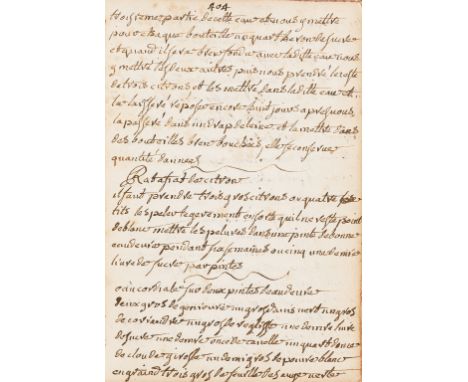 404
troisieme partie de cette eau et nous y mettre
pour chaque bouteille un quartheron de sucre
et quand il sera bien fondu avec laditte eau vous
y mettre les deux autres puis nous prendre le zeste
de trois citrons et les mettre dans laditte eau et
la laissere repose encore huit jours apres nous
la passere dans un drap de laine et la mettre dans
des bouteilles bien bouchees elle se conserve
quantité dannees
Ratafiat de citron
il faut prendre trois gros citrons ou quatre pe
tits les peler legerement en sorte quil ne reste point
de blanc mettre les pelures dans une pinte de bonne
eau de vie pendant trois semaines ou cinq une demie
livre de sucre par pintes
eau cordiale sur deux pintes deau de vie
deux gros de genievre un gros danis vert un gros
de coriandre un gros de reglisse une demie livre
de sucre une demie once de canelle un quart donce
de clou de girofle un demi gros de poivre blanc
en grain trois gros de feuille de sauge verte